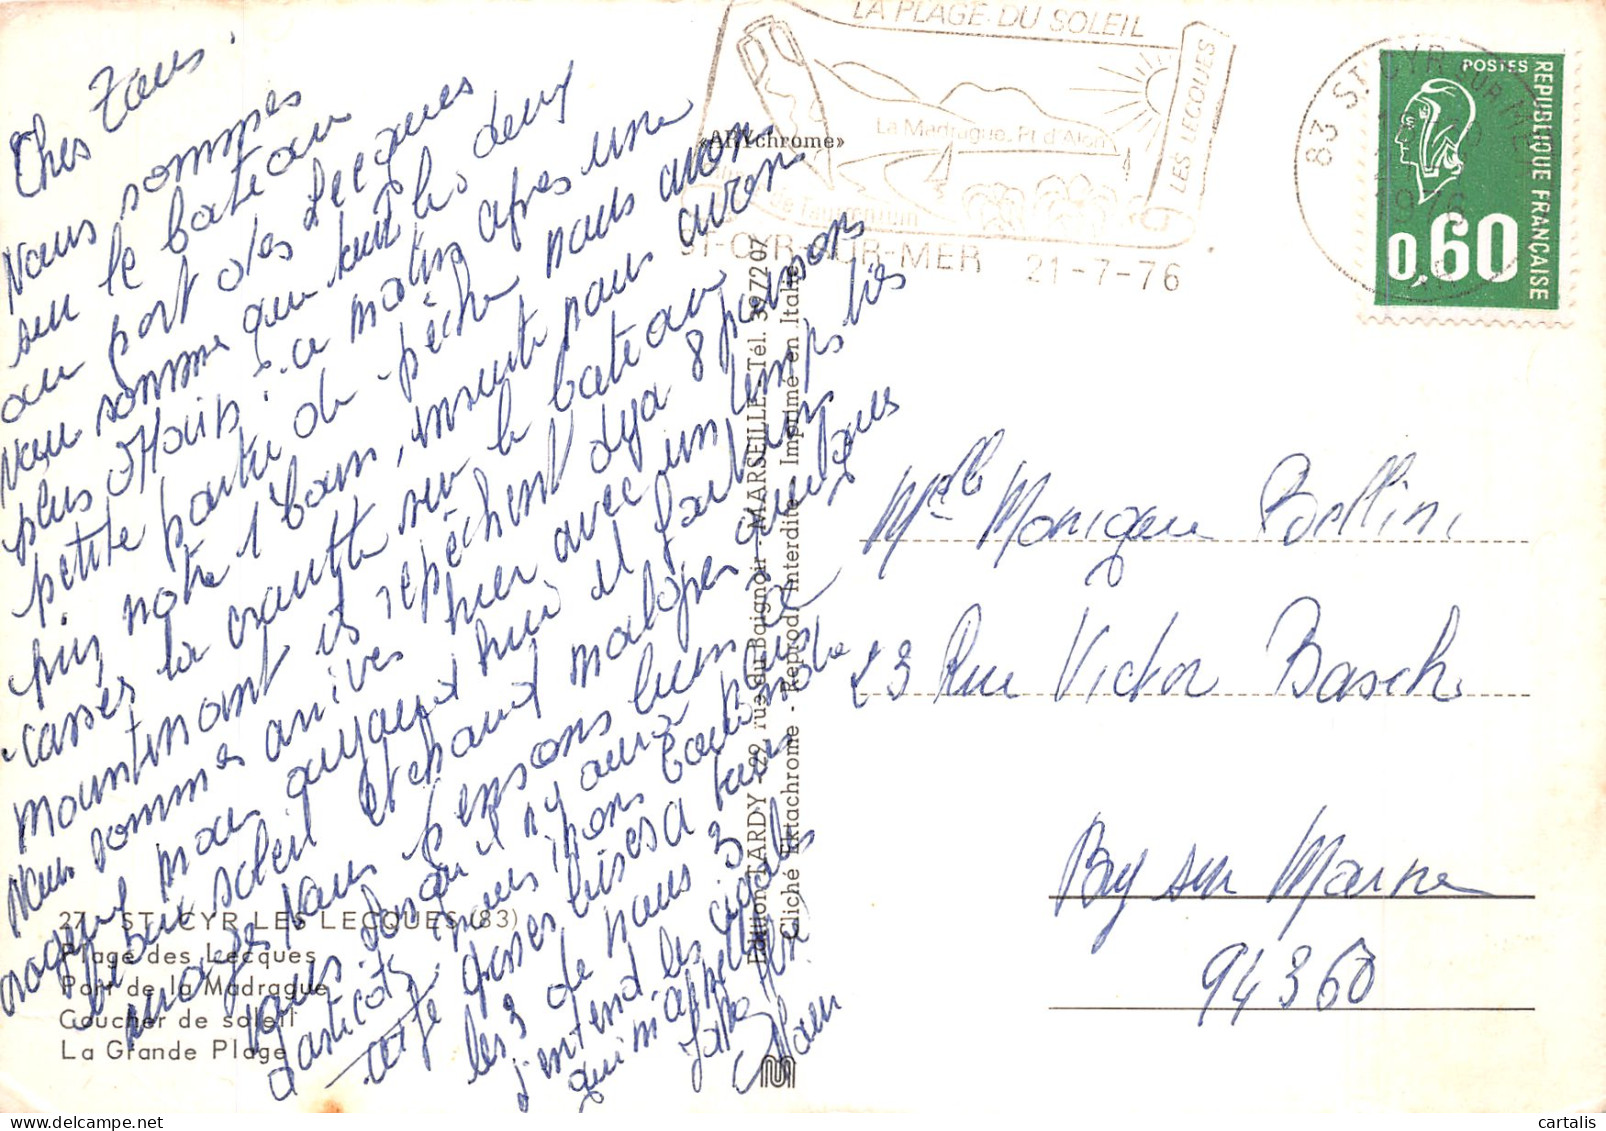 Chers tous.
Nous sommes
sur le bateau
au port des Lecques
nous sommes que tout les deux
plus Mais ce matin après une
petite partie de pêche nous avons
pris notre 1 bain, ensuite nous avons
casser la croutte sur le bateau
maintenant ils repêchent Il y a 8 poissons
Nous sommes arrivés hier avec un temps très
orageux mais aujourd'hui il fait un
beau soleil et chaud malgrés quelques
nuages nous pensons bien a
vous. lorsqu'il y aura
nous irons
grosses bises a tous
les 3 de nous 3
j'entend les cigales
qui m'appellent
LA PLAGE DU SOLEIL
LES LECQUES
La Madrague, Pt d'Alon
de Tauroentum
ST-CYR-SUR-MER 21-7-76
83 ST CYR SUR MER
1976
POSTES
REPUBLIQUE FRANÇAISE
0,60
«ARYchrome»
Edition TARDY - 22, rue du Baignoir - MARSEILLE - Tél. 39.72.07
Cliché Ektachrome - Reprod. Interdite - Imprimé en Italie
Melle Monique Bellini
23 Rue Victor Basch
Bry sur Marne
94360
27 - ST-CYR LES LECQUES (83)
Plage des Lecques
Port de la Madrague
Coucher de soleil
La Grande Plage
cartalis